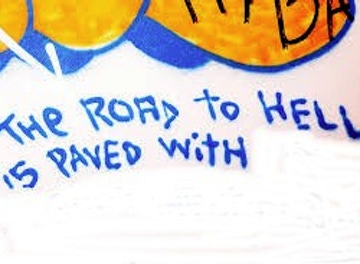 ABA
THE ROAD to HELL
iS PAVED WitH